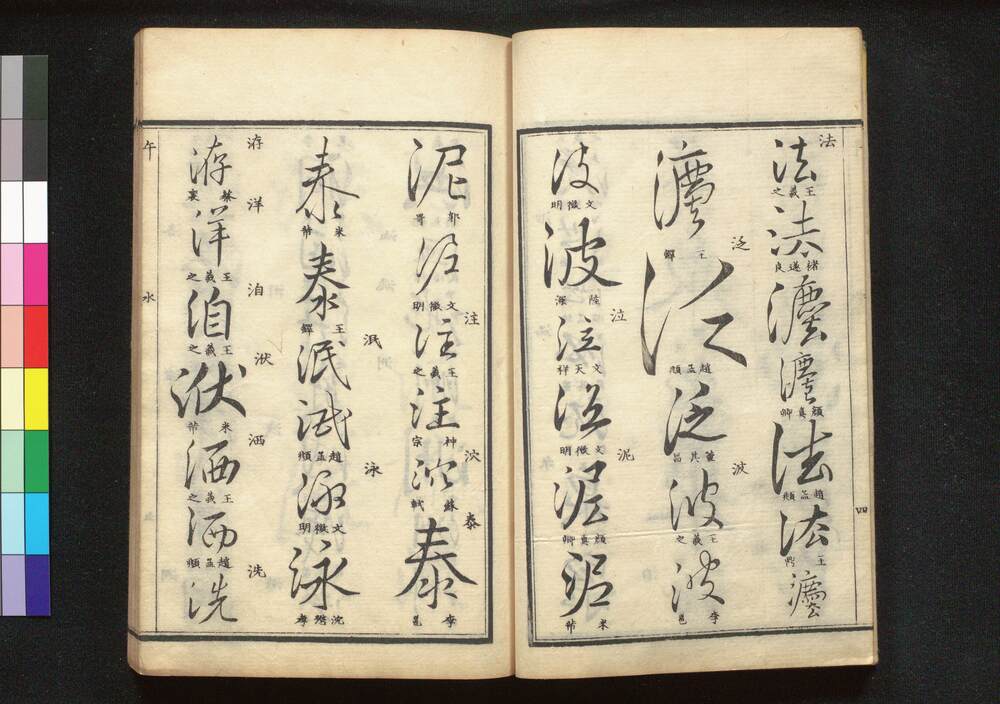 法
法 王羲之
法 褚遂良
灋
灋 顔真卿
法 趙孟頫
法 王鐸
灋
泛
灋 王鐸
泛 趙孟頫
泛 董其昌
波
波 王羲之
波 李邕
波 文徴明
波 陸深
泣
泣 文天祥
泣 文徴明
泥
泥 顔真卿
泥 米芾
泥
泥 文徴明
注
注 王羲之
注 神宗
泬
泬 蘇軾
泰
泰 李邕
泰 米芾
泰 王鐸
泯
泯
泯 趙孟頫
泳
泳 文徴明
泳
洊
洊 蔡襄
洋
洋 王羲之
洎
洎 王羲之
洑
洑 米芾
洒
洒 王羲之
洒 趙孟頫
洗
洗
午
水